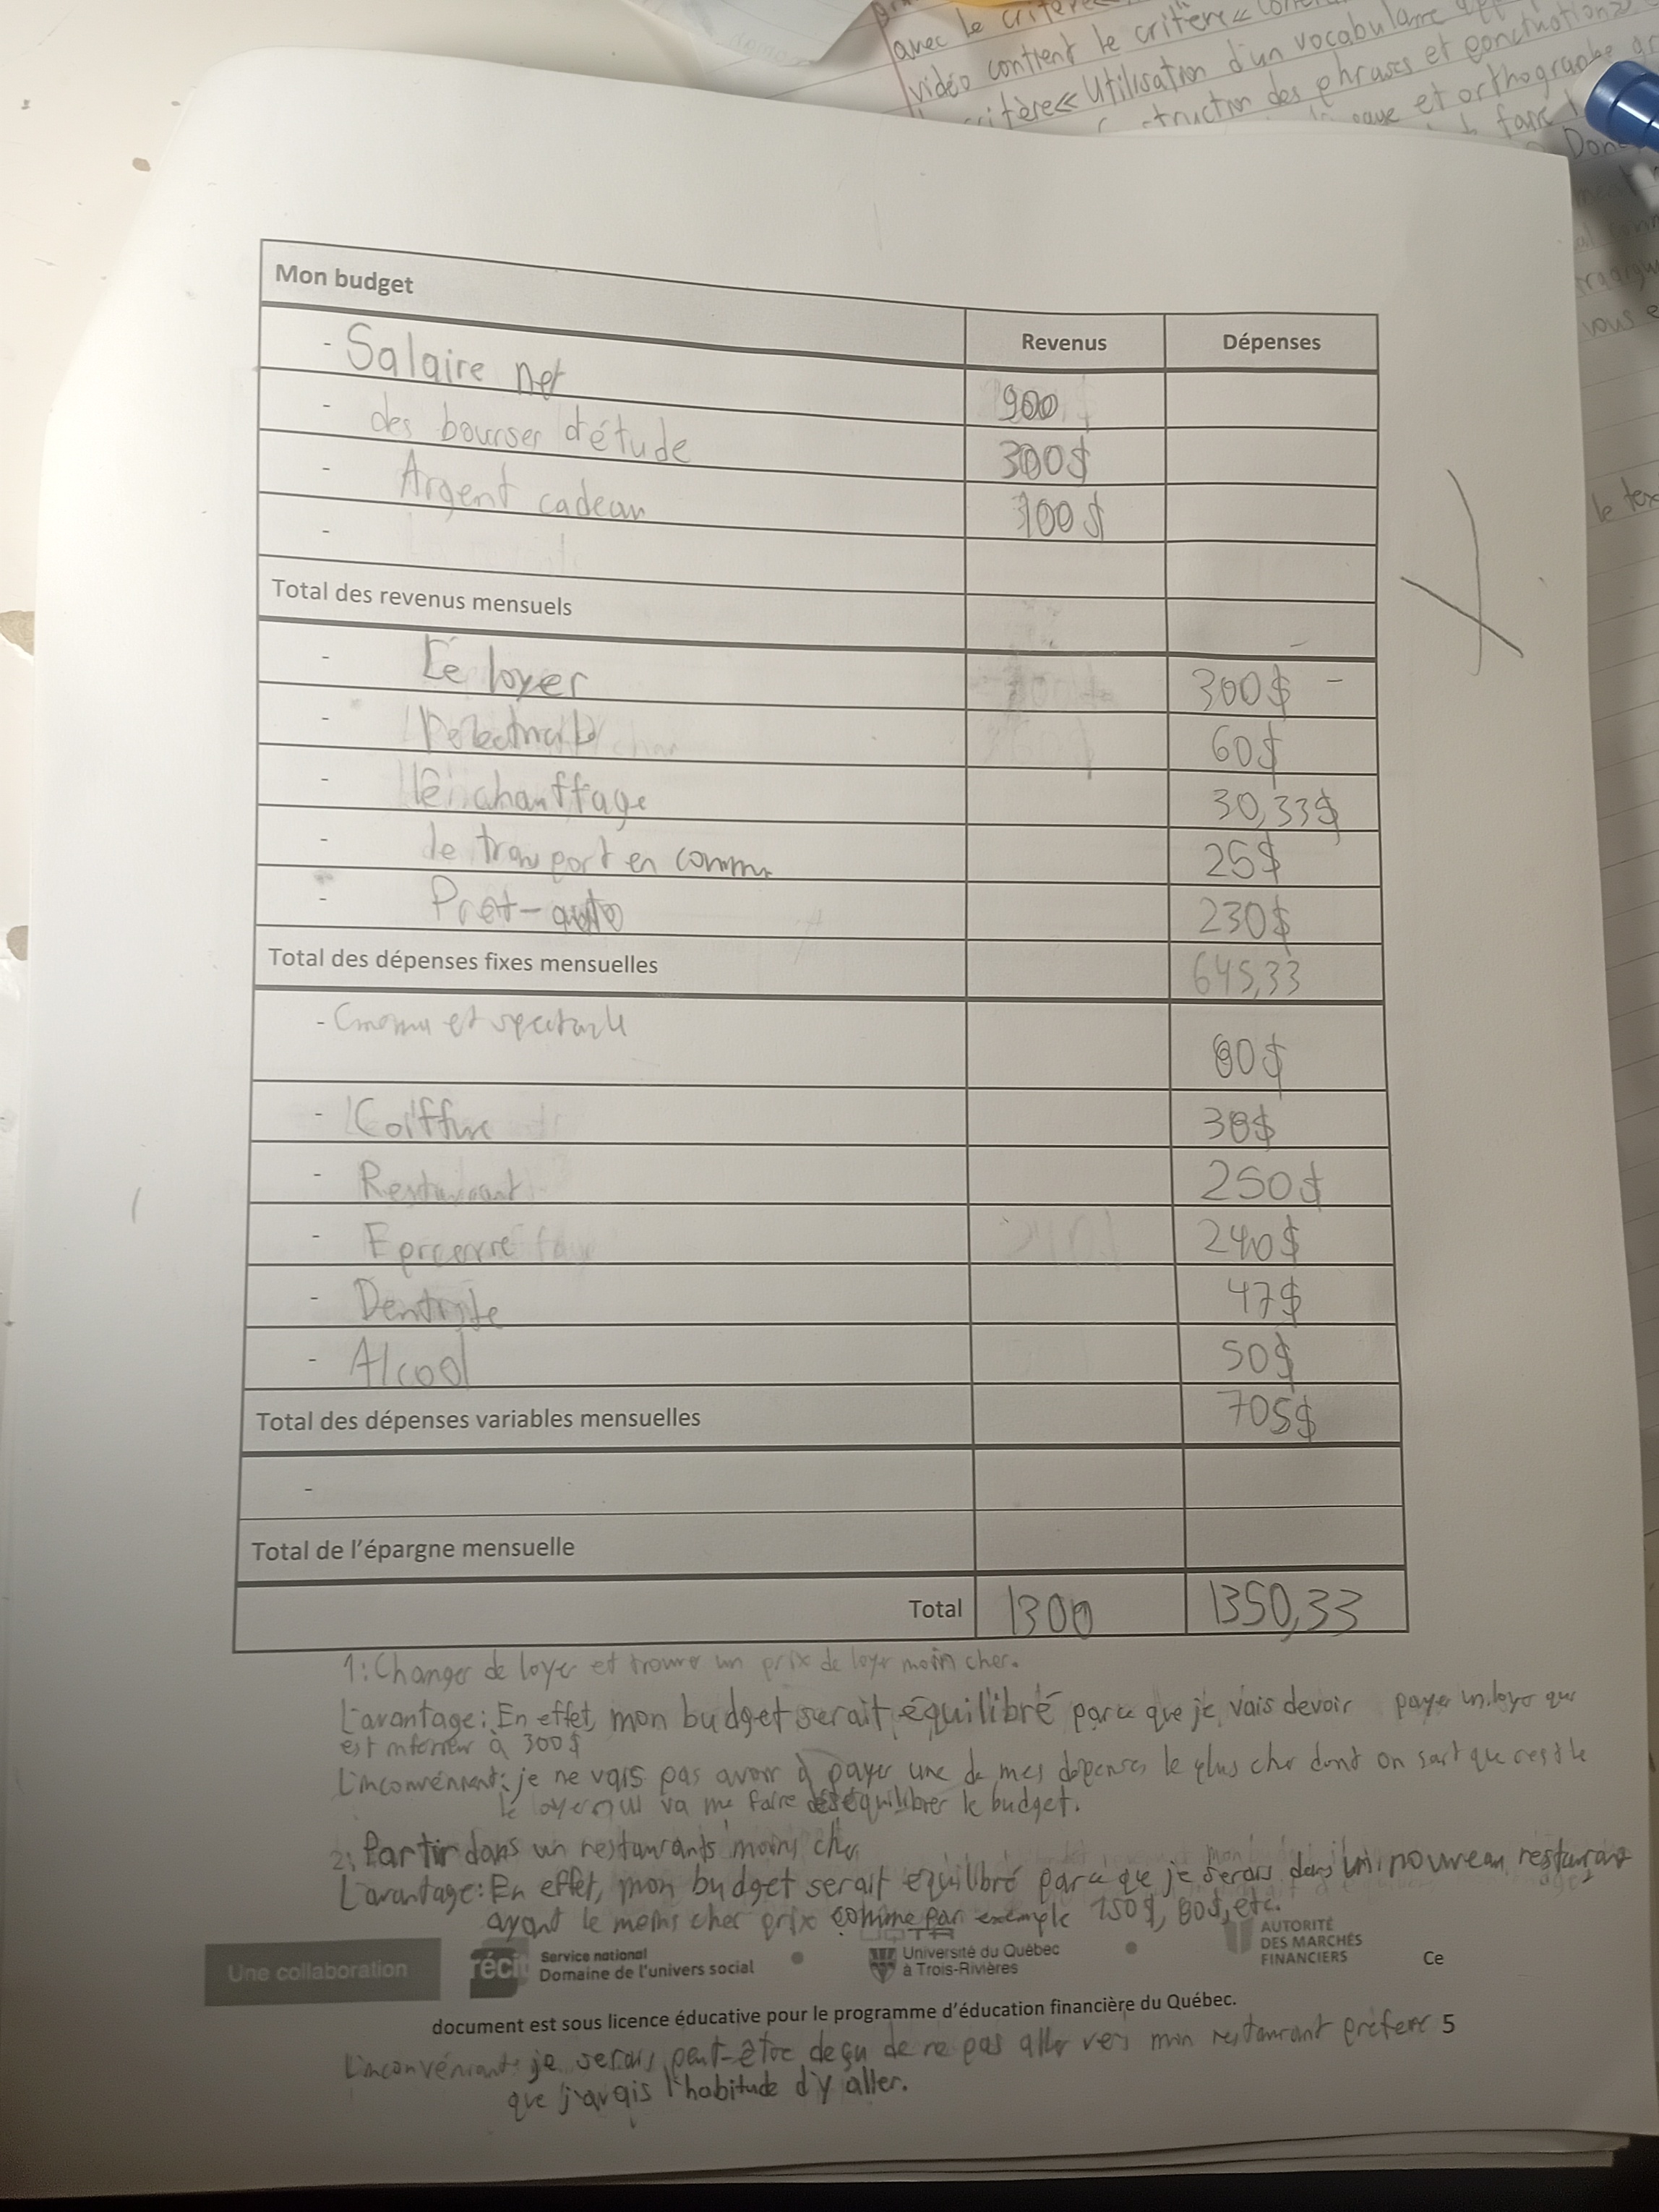 avec le critère
vidéo contient le critère «
critère « Utilisation d'un vocabulaire
struction des phrases et ponctuation »
et orthographe
faire
Donc
vous
le tex
Mon budget
Revenus Dépenses
- Salaire net 900
- des bourses d'étude 300$
- Argent cadeau 100$
-
Total des revenus mensuels
- Le loyer 300$ -
- 60$
- le chauffage 30,33$
- le transport en commu 25$
- Prêt-auto 230$
Total des dépenses fixes mensuelles 645,33
- et spectacle 80$
- Coiffure 38$
- Restaurant 250$
- 240$
- Dentiste 47$
- Alcool 50$
Total des dépenses variables mensuelles 705$
-
Total de l'épargne mensuelle
Total 1300 1350,33
1: Changer de loyer et trouve un prix de loyer moin cher.
L'avantage: En effet, mon budget serait équilibré parce que je vais devoir payer un loyer qui
est inférieur à 300$
L'inconvénient: je ne vais pas avoir à payer une de mes dépenses le plus cher dont on sait que c'est le
le loyer qui va me faire déséquilibrer le budget.
2: Partir dans un restaurants moins cher
L'avantage: En effet, mon budget serait équilibré parce que je serais dans un nouveau restaurant
ayant le moins cher prix comme par exemple 150$, 80$, etc.
Une collaboration
récit Service national
Domaine de l'univers social
UQTR
Université du Québec
à Trois-Rivières
AUTORITÉ
DES MARCHÉS
FINANCIERS
Ce
document est sous licence éducative pour le programme d'éducation financière du Québec.
5
L'inconvéniant: je serais peut-être deçu de ne pas aller vers mon restaurant préféré
que j'avais l'habitude d'y aller.